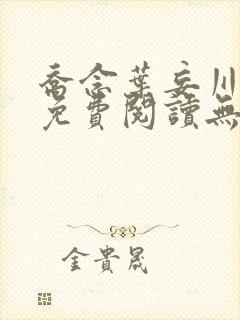 喬念葉妄川
免費閱讀無
金貴晟